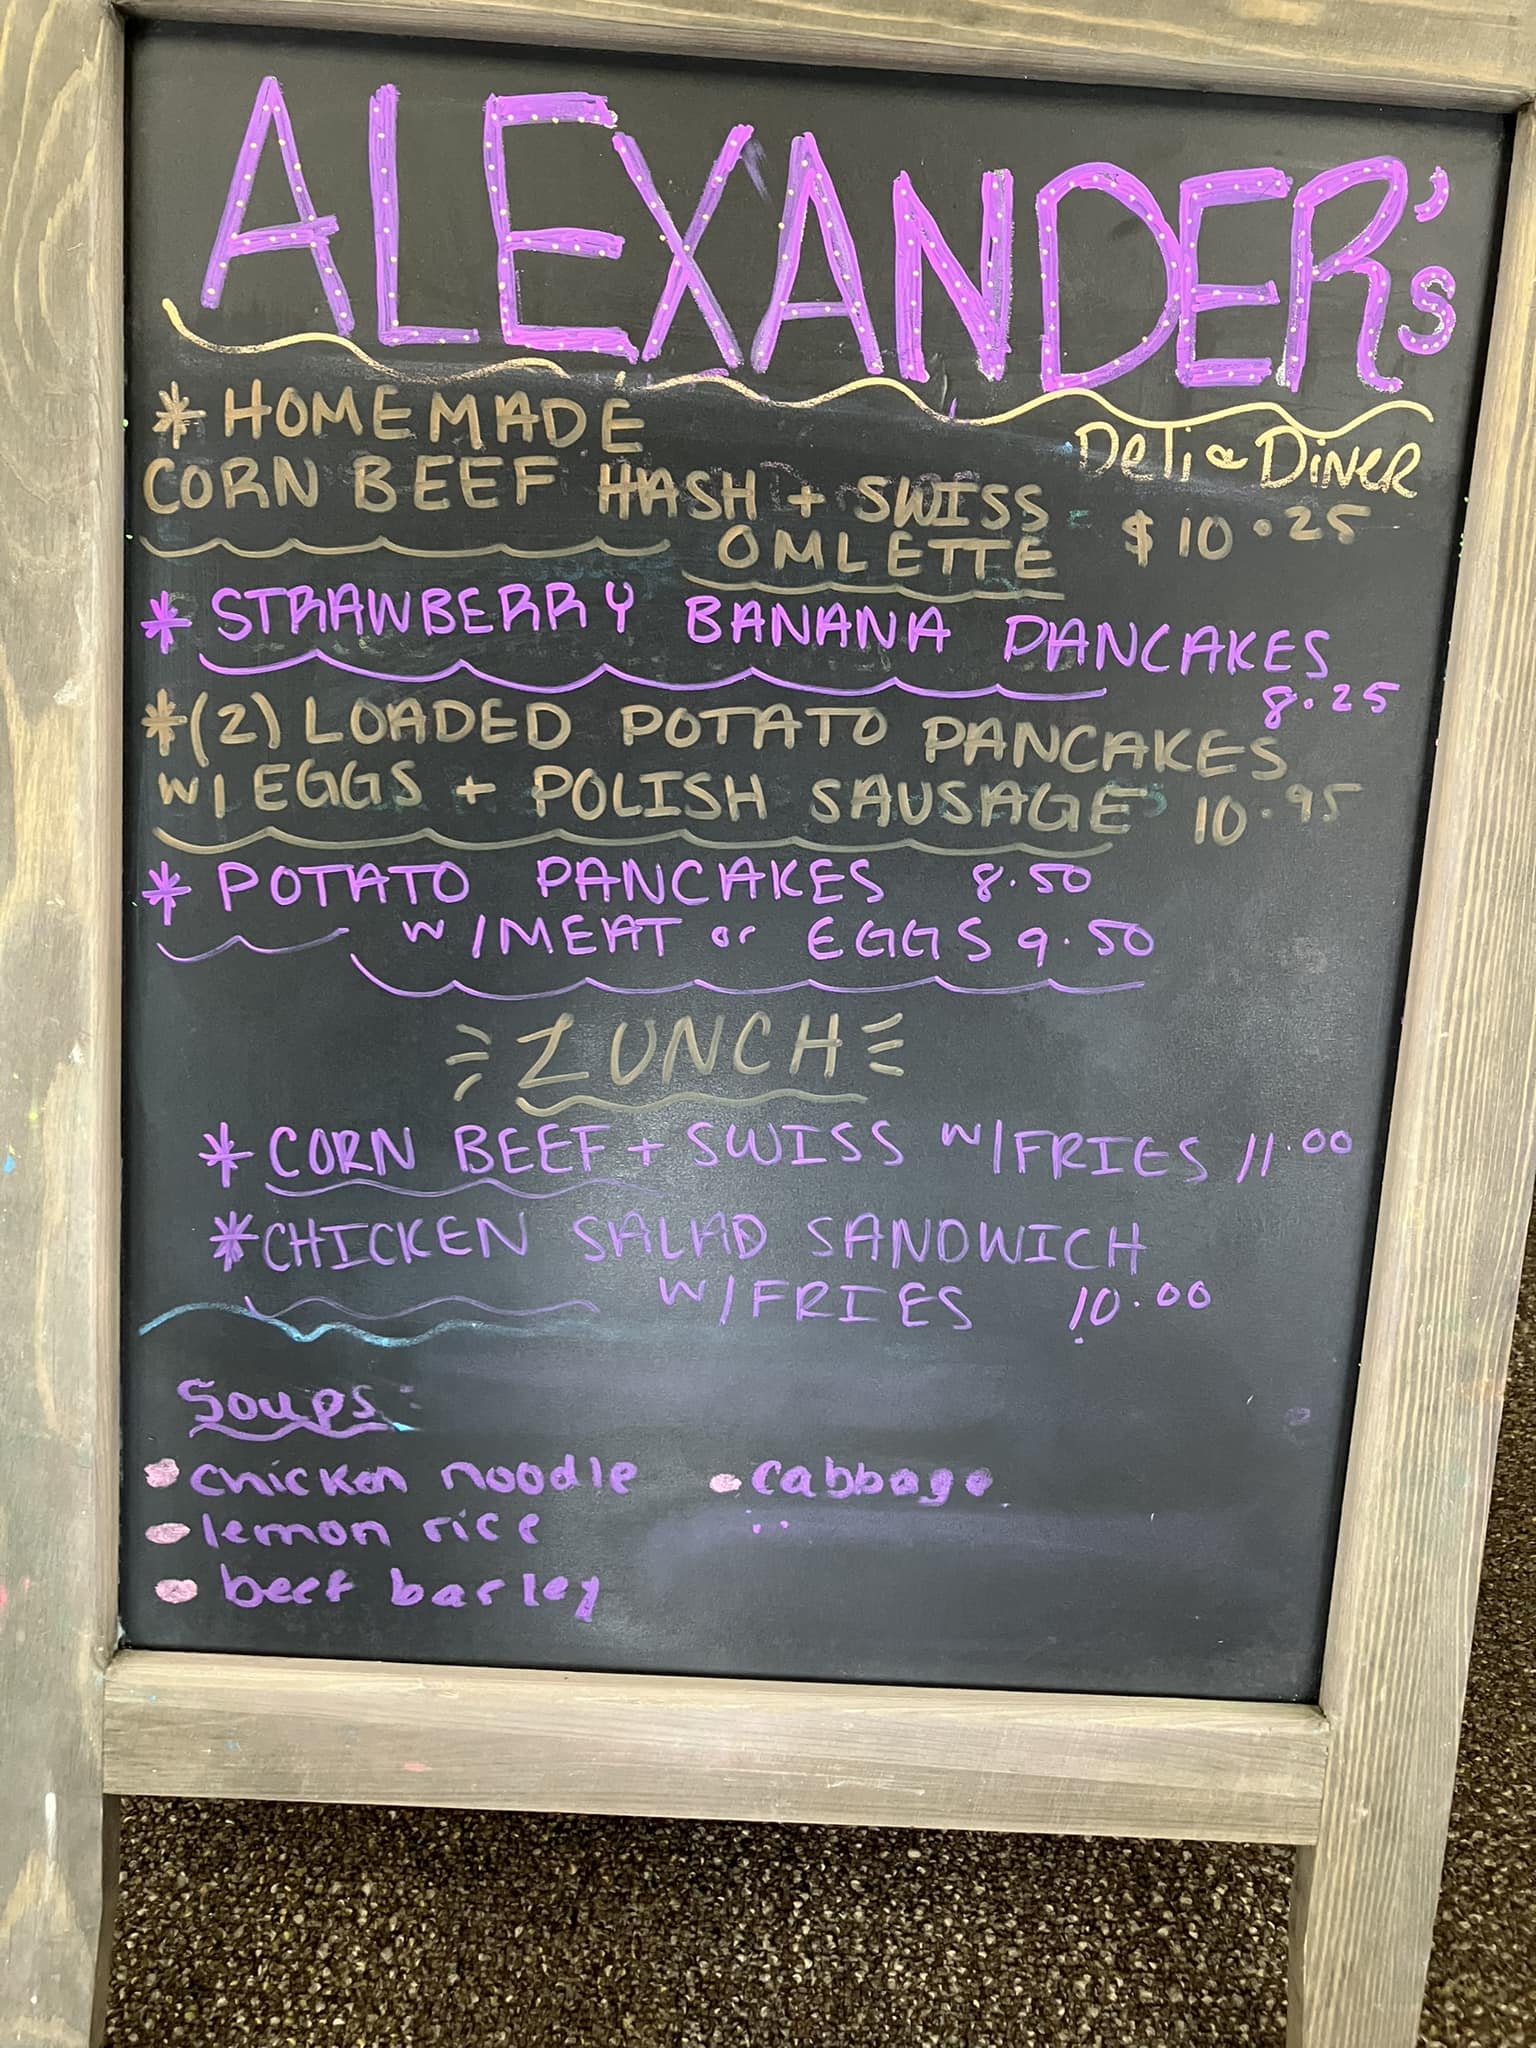 ALEXANDER's
Deli & Diner
* HOMEMADE
CORN BEEF HASH + SWISS
OMLETTE $10.25
* STRAWBERRY BANANA PANCAKES
8.25
*(2) LOADED POTATO PANCAKES
W/ EGGS + POLISH SAUSAGE 10.95
* POTATO PANCAKES 8.50
W/MEAT or EGGS 9.50
LUNCH
* CORN BEEF + SWISS W/FRIES 11.00
*CHICKEN SALAD SANDWICH
W/FRIES 10.00
Soups:
• chicken noodle • cabbage
• lemon rice
• beef barley